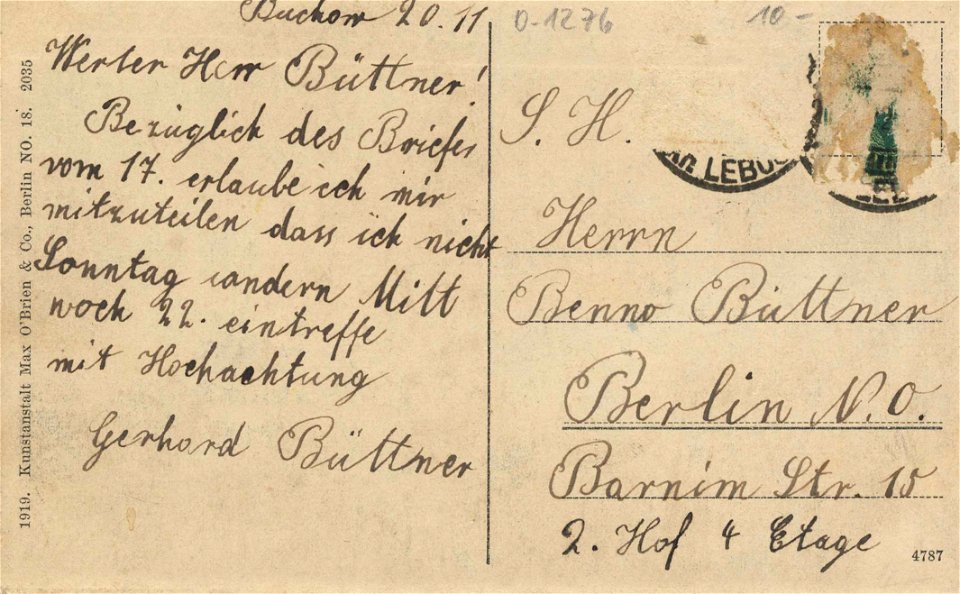 Buckow 20.11
Werter Herr Büttner!
Bezüglich des Briefes
vom 17. erlaube ich mir
mitzuteilen dass ich nicht
Sonntag sondern Mitt
woch 22. eintreffe
mit Hochachtung
Gerhard Büttner
0-1276
10.-
S. H.
LEBUS
Herrn
Benno Büttner
Berlin N.O.
Barnim Str. 15
2. Hof 4 Etage
4787
1919. Kunstanstalt Max O'Brien & Co., Berlin NO. 18. 2035